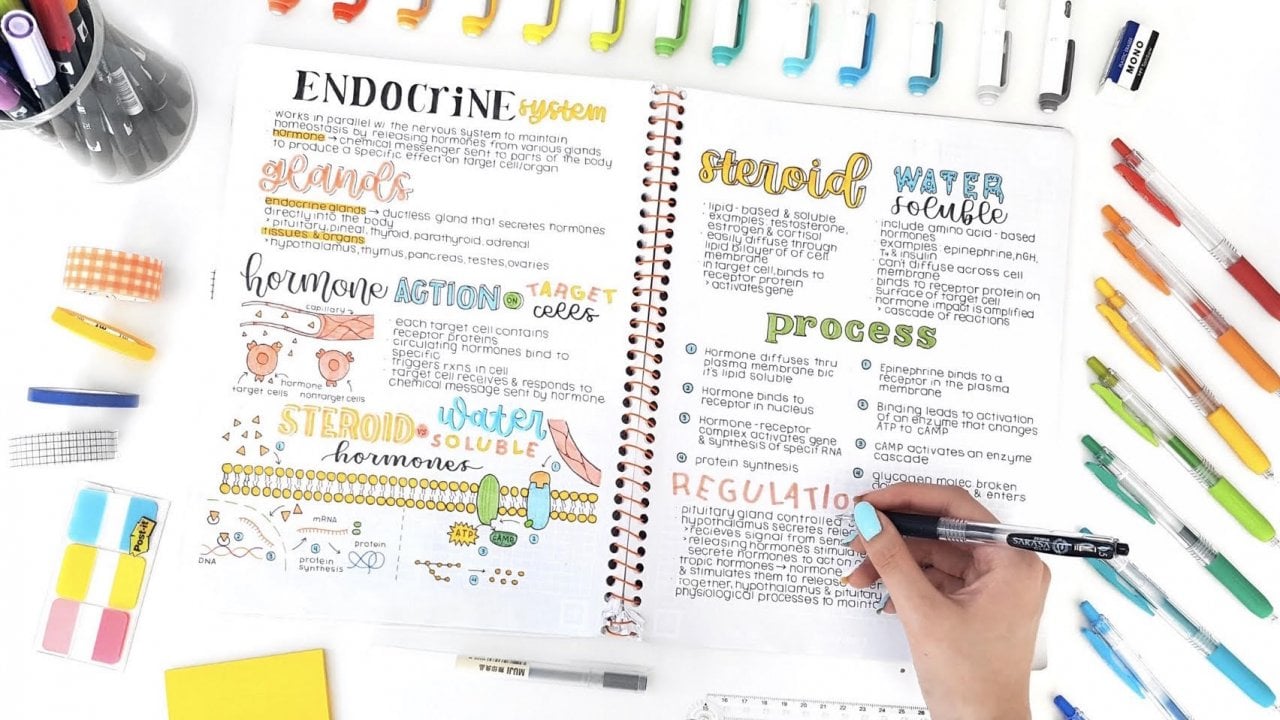 ENDOCRINE system
· works in parallel w/ the nervous system to maintain
homeostasis by releasing hormones from various glands
· hormone → chemical messenger sent to parts of the body
to produce a specific effect on target cell/organ
glands
endocrine glands → ductless gland that secretes hormones
directly into the body
> pituitary, pineal, thyroid, parathyroid, adrenal
tissues & organs
> hypothalamus, thymus, pancreas, testes, ovaries
hormone ACTION ON TARGET
cells
capillary
target cells
hormone
nontarget cells
· each target cell contains
receptor proteins
· circulating hormones bind to
specific
· triggers rxns in cell
· target cell receives & responds to
chemical message sent by hormone
STEROID vs water
SOLUBLE
hormones
1
1
2
DNA
3
mRNA
4
protein
synthesis
protein
ATP
3
2
CAMP
4
steroid
· lipid-based & soluble
· examples: testosterone,
estrogen & cortisol
· easily diffuse through
lipid bilayer of of cell
membrane
· in target cell, binds to
receptor protein
> activates gene
WATER
soluble
· include amino acid-based
hormones
· examples: epinephrine, hGH,
T4 & insulin
· can't diffuse across cell
membrane
· binds to receptor protein on
surface of target cell
· hormone impact is amplified
> cascade of reactions
process
1 Hormone diffuses thru
plasma membrane b/c
it's lipid soluble
2 Hormone binds to
receptor in nucleus
3 Hormone-receptor
complex activates gene
& synthesis of specif RNA
4 protein synthesis
1 Epinephrine binds to a
receptor in the plasma
membrane
2 Binding leads to activation
of an enzyme that changes
ATP to CAMP
3 CAMP activates an enzyme
cascade
4 glycogen molec broken
& enters
REGULATIO
· pituitary gland controlled
· hypothalamus secretes
> recieves signal from
> releasing hormones
secrete hormones to
· tropic hormones → hormone
& stimulates them to
· together, hypothalamus & pituitary
physiological processes to
MONO
Post-it
MUJI 無印良品
SARASA
16 17 18 19 20 21 22 23 24 25 26